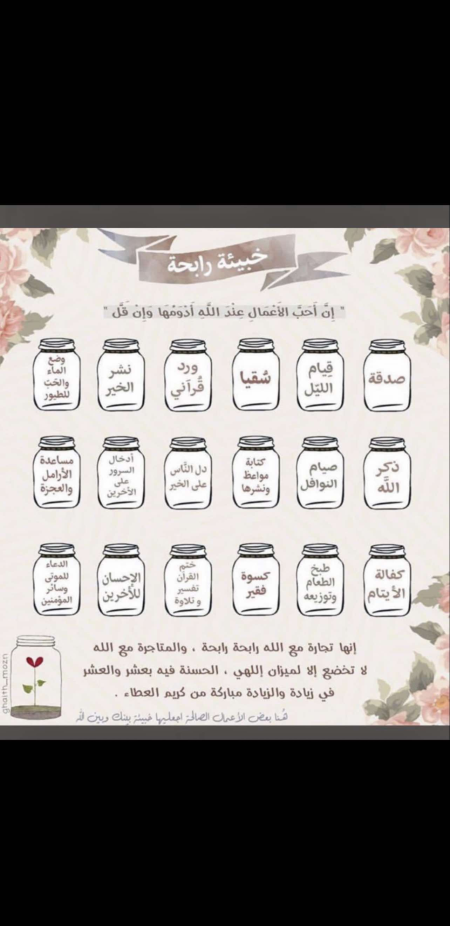 خبيئة رابحة
" إِنَّ أَحَبَّ الأَعْمَالِ عِنْدَ اللَّهِ أَدْوَمُهَا وَإِنْ قَلَّ "
صدقة
قِيام
الليّل
سُقيا
ورد
قُرآني
نشر
الخير
وضع
الماء
والحَب
للطيور
ذكر
اللَّه
صيام
النوافل
كتابة
مواعظ
ونشرها
دل النَّاس
على الخير
أدخال
السرور
على
الأخرين
مساعدة
الأرامل
والعجزة
كفالة
الأيتام
طبخ
الطعام
وتوزيعه
كسوة
فقير
ختم
القرآن
تفسير
و تلاوة
الإحسان
للأخرين
الدعاء
للموتى
وسائر
المؤمنين
إنها تجارة مع الله رابحة رابحة ، والمتاجرة مع الله
لا تخضع إلا لميزان إللهي ، الحسنة فيه بعشر والعشر
في زيادة والزيادة مباركة من كريم العطاء .
هُنا بعض الأعمال الصالحة اجعليها خبيئة بينك وبين الله
ghaith_mozn